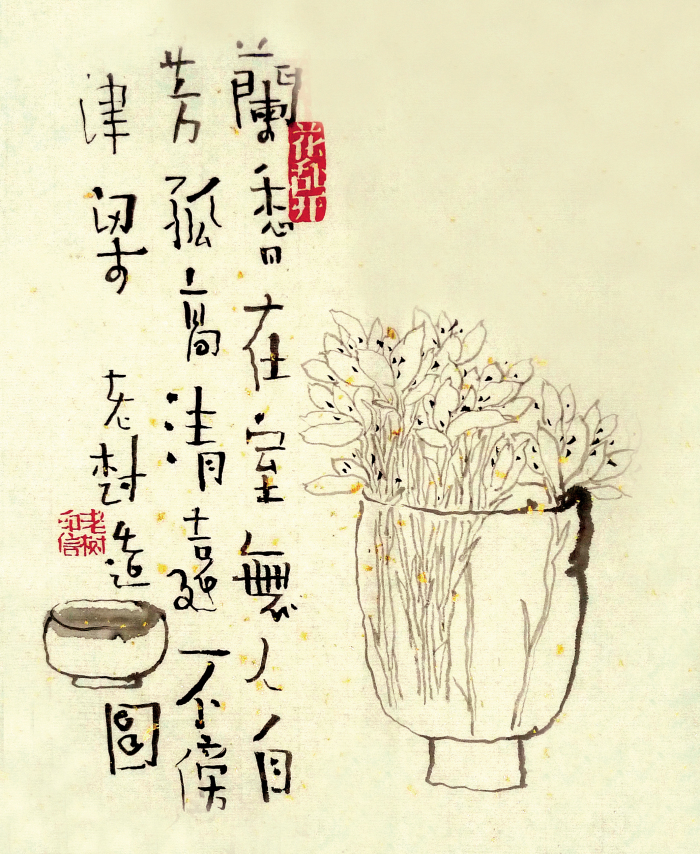 蘭香在室無人自
芳孤高清遠不傍
津梁 老樹造圖
花乱开
老树